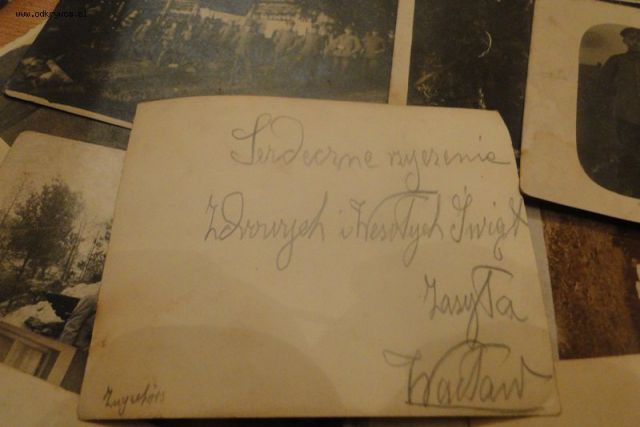 www.odkrywca.pl
Serdeczne życzenia
Zdrowych i Wesołych Świąt
zasyła
Wacław